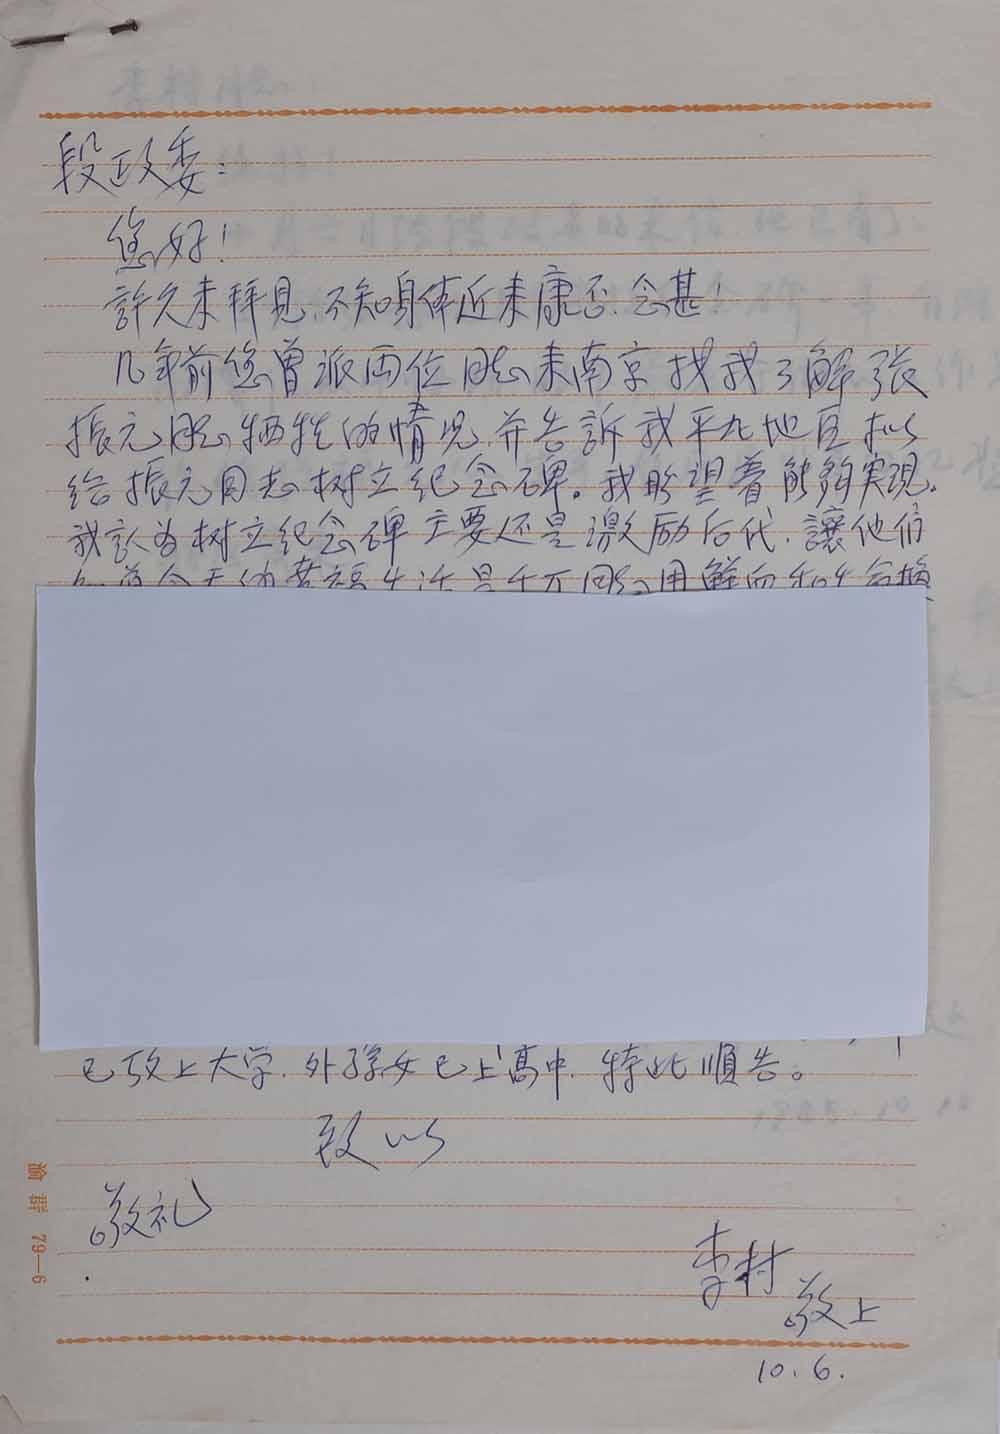 段政委：
您好！
許久未拜見，不知身体近来康否，念甚！
几年前您曾派两位同志来南京找我了解張
振元同志牺牲的情况，并告訴我平九地区拟
给振元同志树立纪念碑。我盼望着能夠实现。
我認为树立纪念碑主要还是激励后代，讓他们
今天的幸福生活是千万同志用鲜血和生命换
已攻上大学，外孫女已上高中，特此順告。
致以
敬礼
李村
敬上
10.6.
79—6